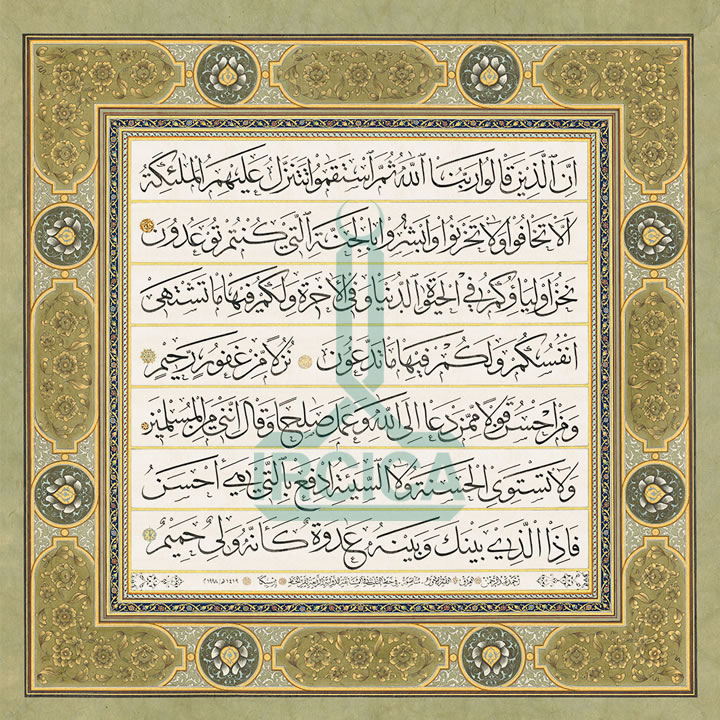 ان الذين قالوا ربنا الله ثم استقموا تتنزل عليهم الملئكة
الا تخافوا ولا تحزنوا وابشروا بالجنة التي كنتم توعدون
نحن اولياؤكم في الحيوة الدنيا وفي الاخرة ولكم فيها ما تشتهى
انفسكم ولكم فيها ما تدعون نزلا من غفور رحيم
ومن احسن قولا ممن دعا الى الله وعمل صلحا وقال اننى من المسلمين
ولا تستوى الحسنة ولا السيئة ادفع بالتي هي احسن
فاذا الذي بينك وبينه عدوة كأنه ولى حميم
IRCICA